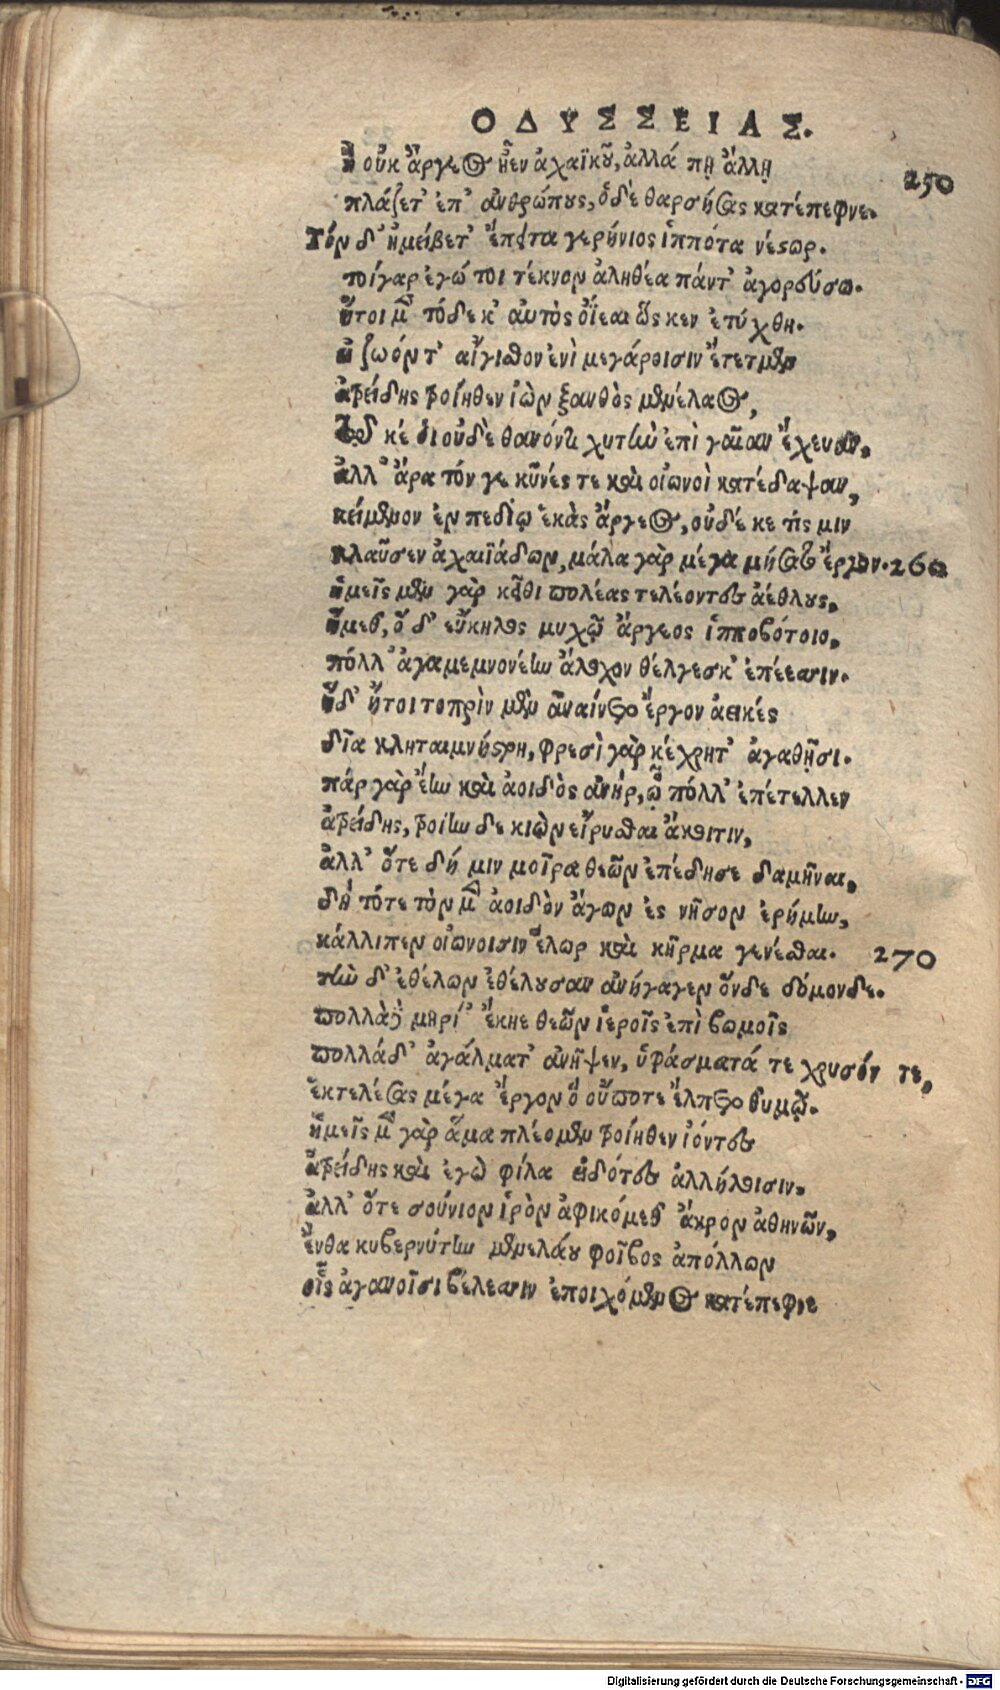 ΟΔΥΣΣΕΙΑΣ.
Ἦ οὐκ ἄργεος ἦεν ἀχαϊκοῦ, ἀλλά πῃ ἄλλῃ 250
πλάζετ' ἐπ' ἀνθρώπους, ὁ δὲ θαρσήσας κατέπεφνε.
Τὸν δ' ἠμείβετ' ἔπειτα γερήνιος ἱππότα νέστωρ.
τοίγαρ ἐγώ τοι τέκνον ἀληθέα πάντ' ἀγορεύσω.
ἤτοι μὲν τόδε κ' αὐτὸς ὀΐεαι ὥς κεν ἐτύχθη.
εἰ ζωόντ' αἴγισθον ἐνὶ μεγάροισιν ἔτετμεν
ἀτρείδης τροίηθεν ἰὼν ξανθὸς μενέλαος,
τῷ κέ οἱ οὐδὲ θανόντι χυτὴν ἐπὶ γαῖαν ἔχευαν,
ἀλλ' ἄρα τόν γε κύνές τε καὶ οἰωνοὶ κατέδαψαν,
κείμενον ἐν πεδίῳ ἑκὰς ἄργεος, οὐδέ κε τίς μιν
κλαῦσεν ἀχαιϊάδων, μάλα γὰρ μέγα μήσατο ἔργον. 260
ἡμεῖς μὲν γὰρ κεῖθι πολέας τελέοντες ἀέθλους,
ἥμεθ, ὅ δ' εὔκηλος μυχῷ ἄργεος ἱπποβότοιο,
πόλλ' ἀγαμεμνονέην ἄλοχον θέλγεσκ' ἐπέεσσιν.
ἥδ' ἤτοι τοπρὶν μὲν ἀναίνετο ἔργον ἀεικές
δῖα κληταιμνήστρη, φρεσὶ γὰρ κέχρητ' ἀγαθῇσι.
πάρ γὰρ ἔην καὶ ἀοιδὸς ἀνήρ, ᾧ πόλλ' ἐπέτελλεν
ἀτρείδης, τροίην δε κιὼν εἴρυσθαι ἄκοιτιν,
ἀλλ' ὅτε δή μιν μοῖρα θεῶν ἐπέδησε δαμῆναι,
δὴ τότε τὸν μὲν ἀοιδὸν ἄγων ἐς νῆσον ἐρήμην,
κάλλιπεν οἰωνοισιν ἕλωρ καὶ κῆρμα γενέσθαι. 270
τὴν δ' ἐθέλων ἐθέλουσαν ἀνήγαγεν ὅνδε δόμονδε.
πολλὰ δὲ μηρί' ἔκηε θεῶν ἱεροῖς ἐπὶ βωμοῖς
πολλάδ' ἀγάλματ' ἀνῆψεν, ὑφάσματά τε χρυσόν τε,
ἐκτελέσας μέγα ἔργον ὃ οὔποτε ἔλπετο θυμῷ.
ἡμεῖς μὲν γὰρ ἅμα πλέομεν τροίηθεν ἰόντες
ἀτρείδης καὶ ἐγὼ φίλα εἰδότες ἀλλήλοισιν,
ἀλλ' ὅτε σούνιον ἱρὸν ἀφικόμεθ ἄκρον ἀθηνῶν,
ἔνθα κυβερνήτην μενελάου φοῖβος ἀπόλλων
οἷς ἀγανοῖσι βέλεσσιν ἐποιχόμενος κατέπεφνε
Digitalisierung gefördert durch die Deutsche Forschungsgemeinschaft - DFG